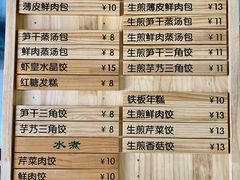 薄皮鲜肉包 ¥10
笋干蒸汤包 ¥8
鲜肉蒸汤包 ¥8
虾皇水晶饺 ¥15
红糖发糕 ¥8
笋干三角饺 ¥8
芋艿三角饺 ¥8
水煮
芹菜肉饺 ¥10
鲜肉饺 ¥10
生煎薄皮鲜肉包 ¥13
生煎笋干蒸汤包 ¥11
生煎鲜肉蒸汤包 ¥11
生煎笋干三角饺 ¥11
生煎芋艿三角饺 ¥11
铁板年糕 ¥10
生煎鲜肉饺 ¥13
生煎芹菜饺 ¥13
生煎香菇饺 ¥13